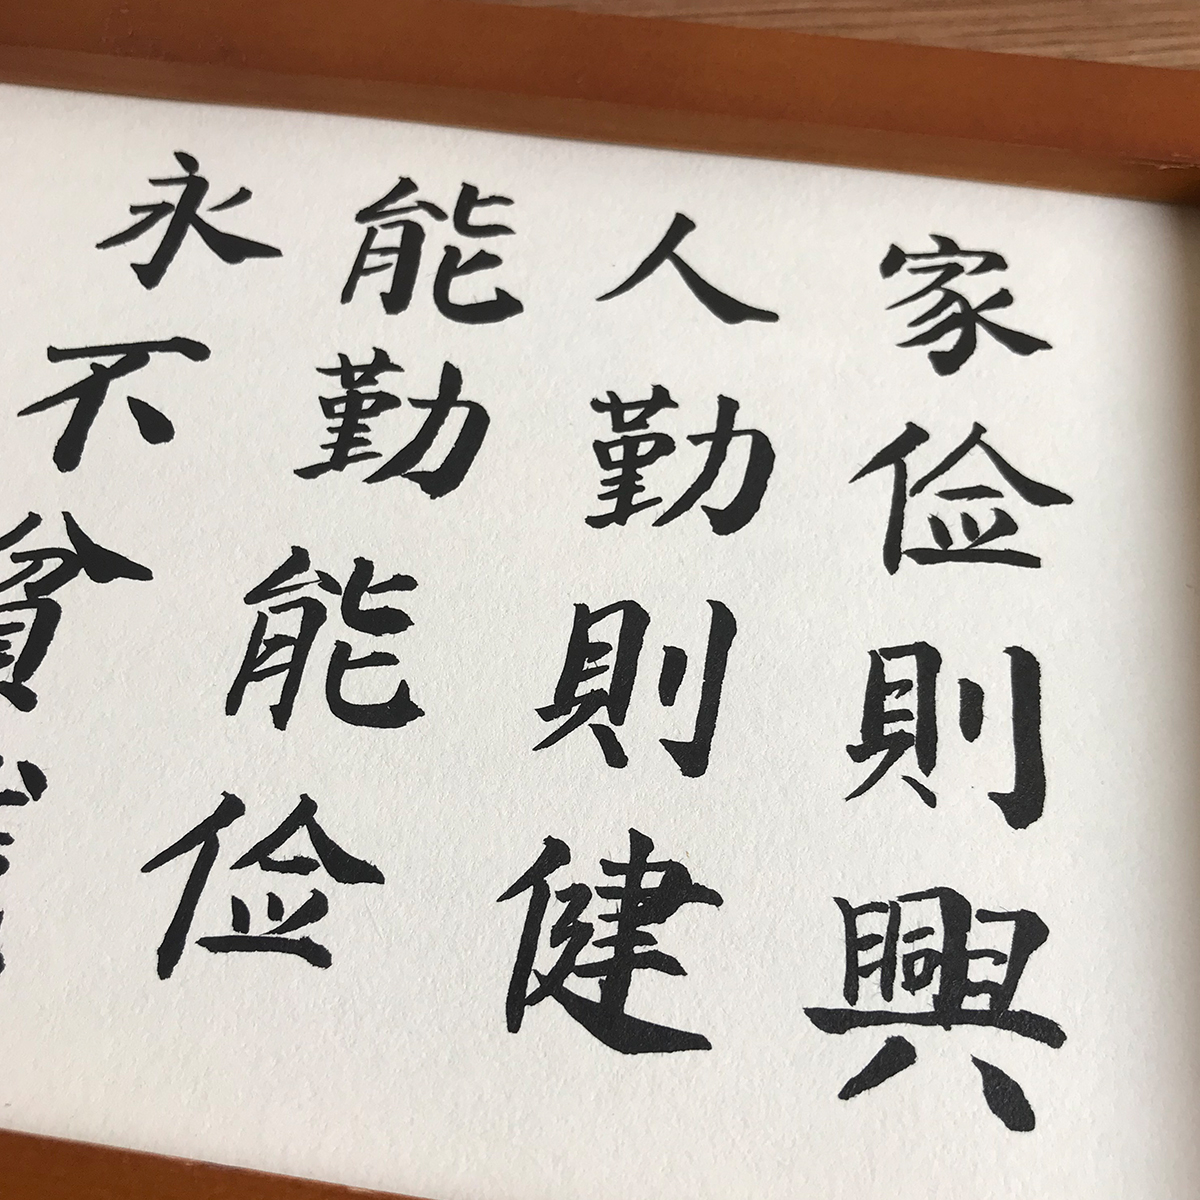 家俭則興
人勤則健
能勤能俭
永不貧